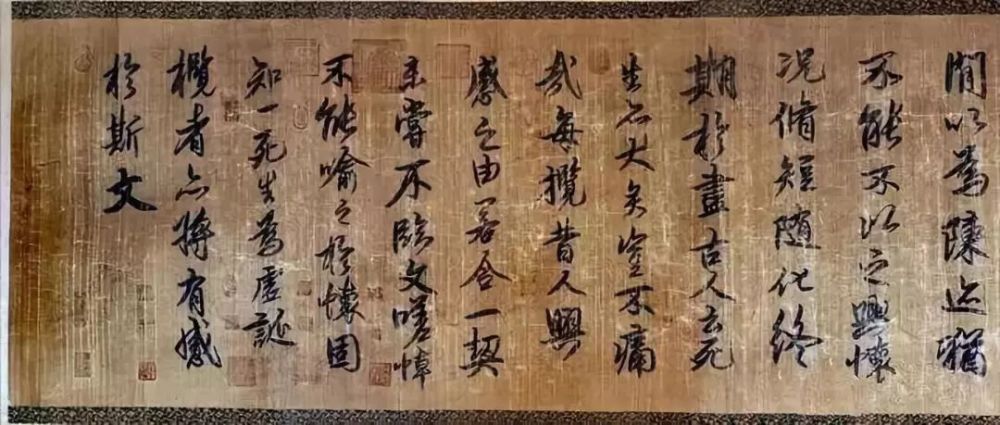 閒以為陳迹猶
不能不以之興懷
況脩短随化終
期於盡古人云死
生亦大矣豈不痛
哉每攬昔人興
感之由若合一契
未嘗不臨文嗟悼
不能喻之於懷固
知一死生為虛誕
攬者亦將有感
於斯文